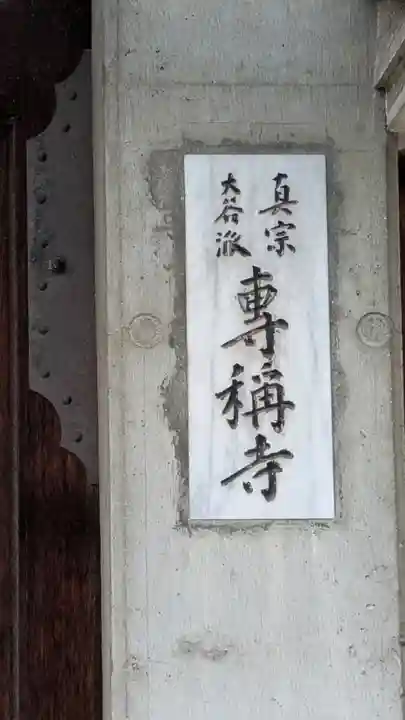 真宗
大谷派
專稱寺